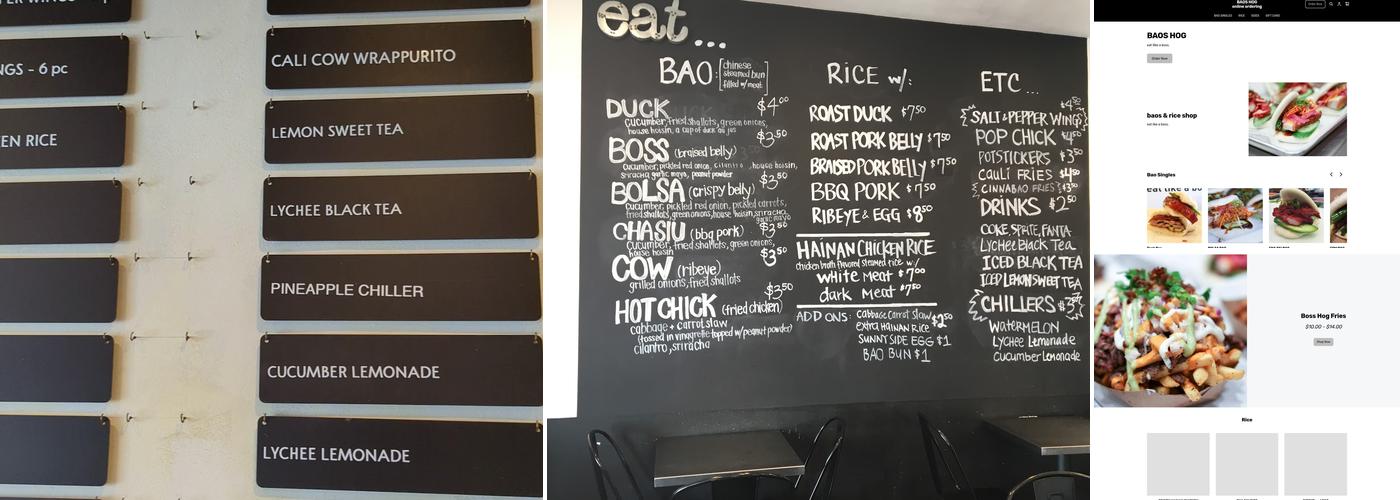 NGS - 6 pc
EN RICE
CALI COW WRAPPURITO
LEMON SWEET TEA
LYCHEE BLACK TEA
PINEAPPLE CHILLER
CUCUMBER LEMONADE
LYCHEE LEMONADE
eat...
BAO: [chinese
steamed bun
filled w/ meat]
DUCK $4.00
cucumber, fried shallots, green onions,
house hoisin, a cup of duck au jus
BOSS (braised belly) $3.50
cucumber, pickled red onion, cilantro, house hoisin,
sriracha garlic mayo, peanut powder
BOLSA (crispy belly) $3.50
cucumber, pickled red onion, pickled carrots,
fried shallots, green onions, house hoisin, sriracha
garlic mayo
CHASIU (bbq pork) $3.50
cucumber, fried shallots, green onions,
house hoisin
COW (ribeye) $3.50
grilled onions, fried shallots
HOT CHICK (fried chicken) $3.50
cabbage + carrot slaw
(tossed in vinegrette topped w/ peanut powder)
cilantro, sriracha
RICE w/:
ROAST DUCK $7.50
ROAST PORK BELLY $7.50
BRAISED PORK BELLY $7.50
BBQ PORK $7.50
RIBEYE & EGG $8.50
HAINAN CHICKEN RICE
chicken broth flavored steamed rice w/
white meat $7.00
dark meat $7.50
ADD ONS: cabbage carrot slaw $2.50
extra HAINAN RICE
SUNNY SIDE EGG $1
BAO BUN $1
ETC...
SALT & PEPPER WINGS $4.50
POP CHICK $4.50
POTSTICKERS $3.50
CAULI FRIES $4.50
CINNABAO FRIES $3.50
DRINKS $2.50
COKE, SPRITE, FANTA
Lychee Black Tea
ICED BLACK TEA
ICED LEMON SWEET TEA
CHILLERS
WATERMELON
Lychee Lemonade
Cucumber Lemonade
BAOS HOG
online ordering
Order Now
BAO SINGLES RICE SIDES GIFT CARD
BAOS HOG
eat like a boss.
Order Now
baos & rice shop
eat like a boss.
Bao Singles
eat like a b
Boss Hog Fries
$10.00 - $14.00
Shop Now
Rice